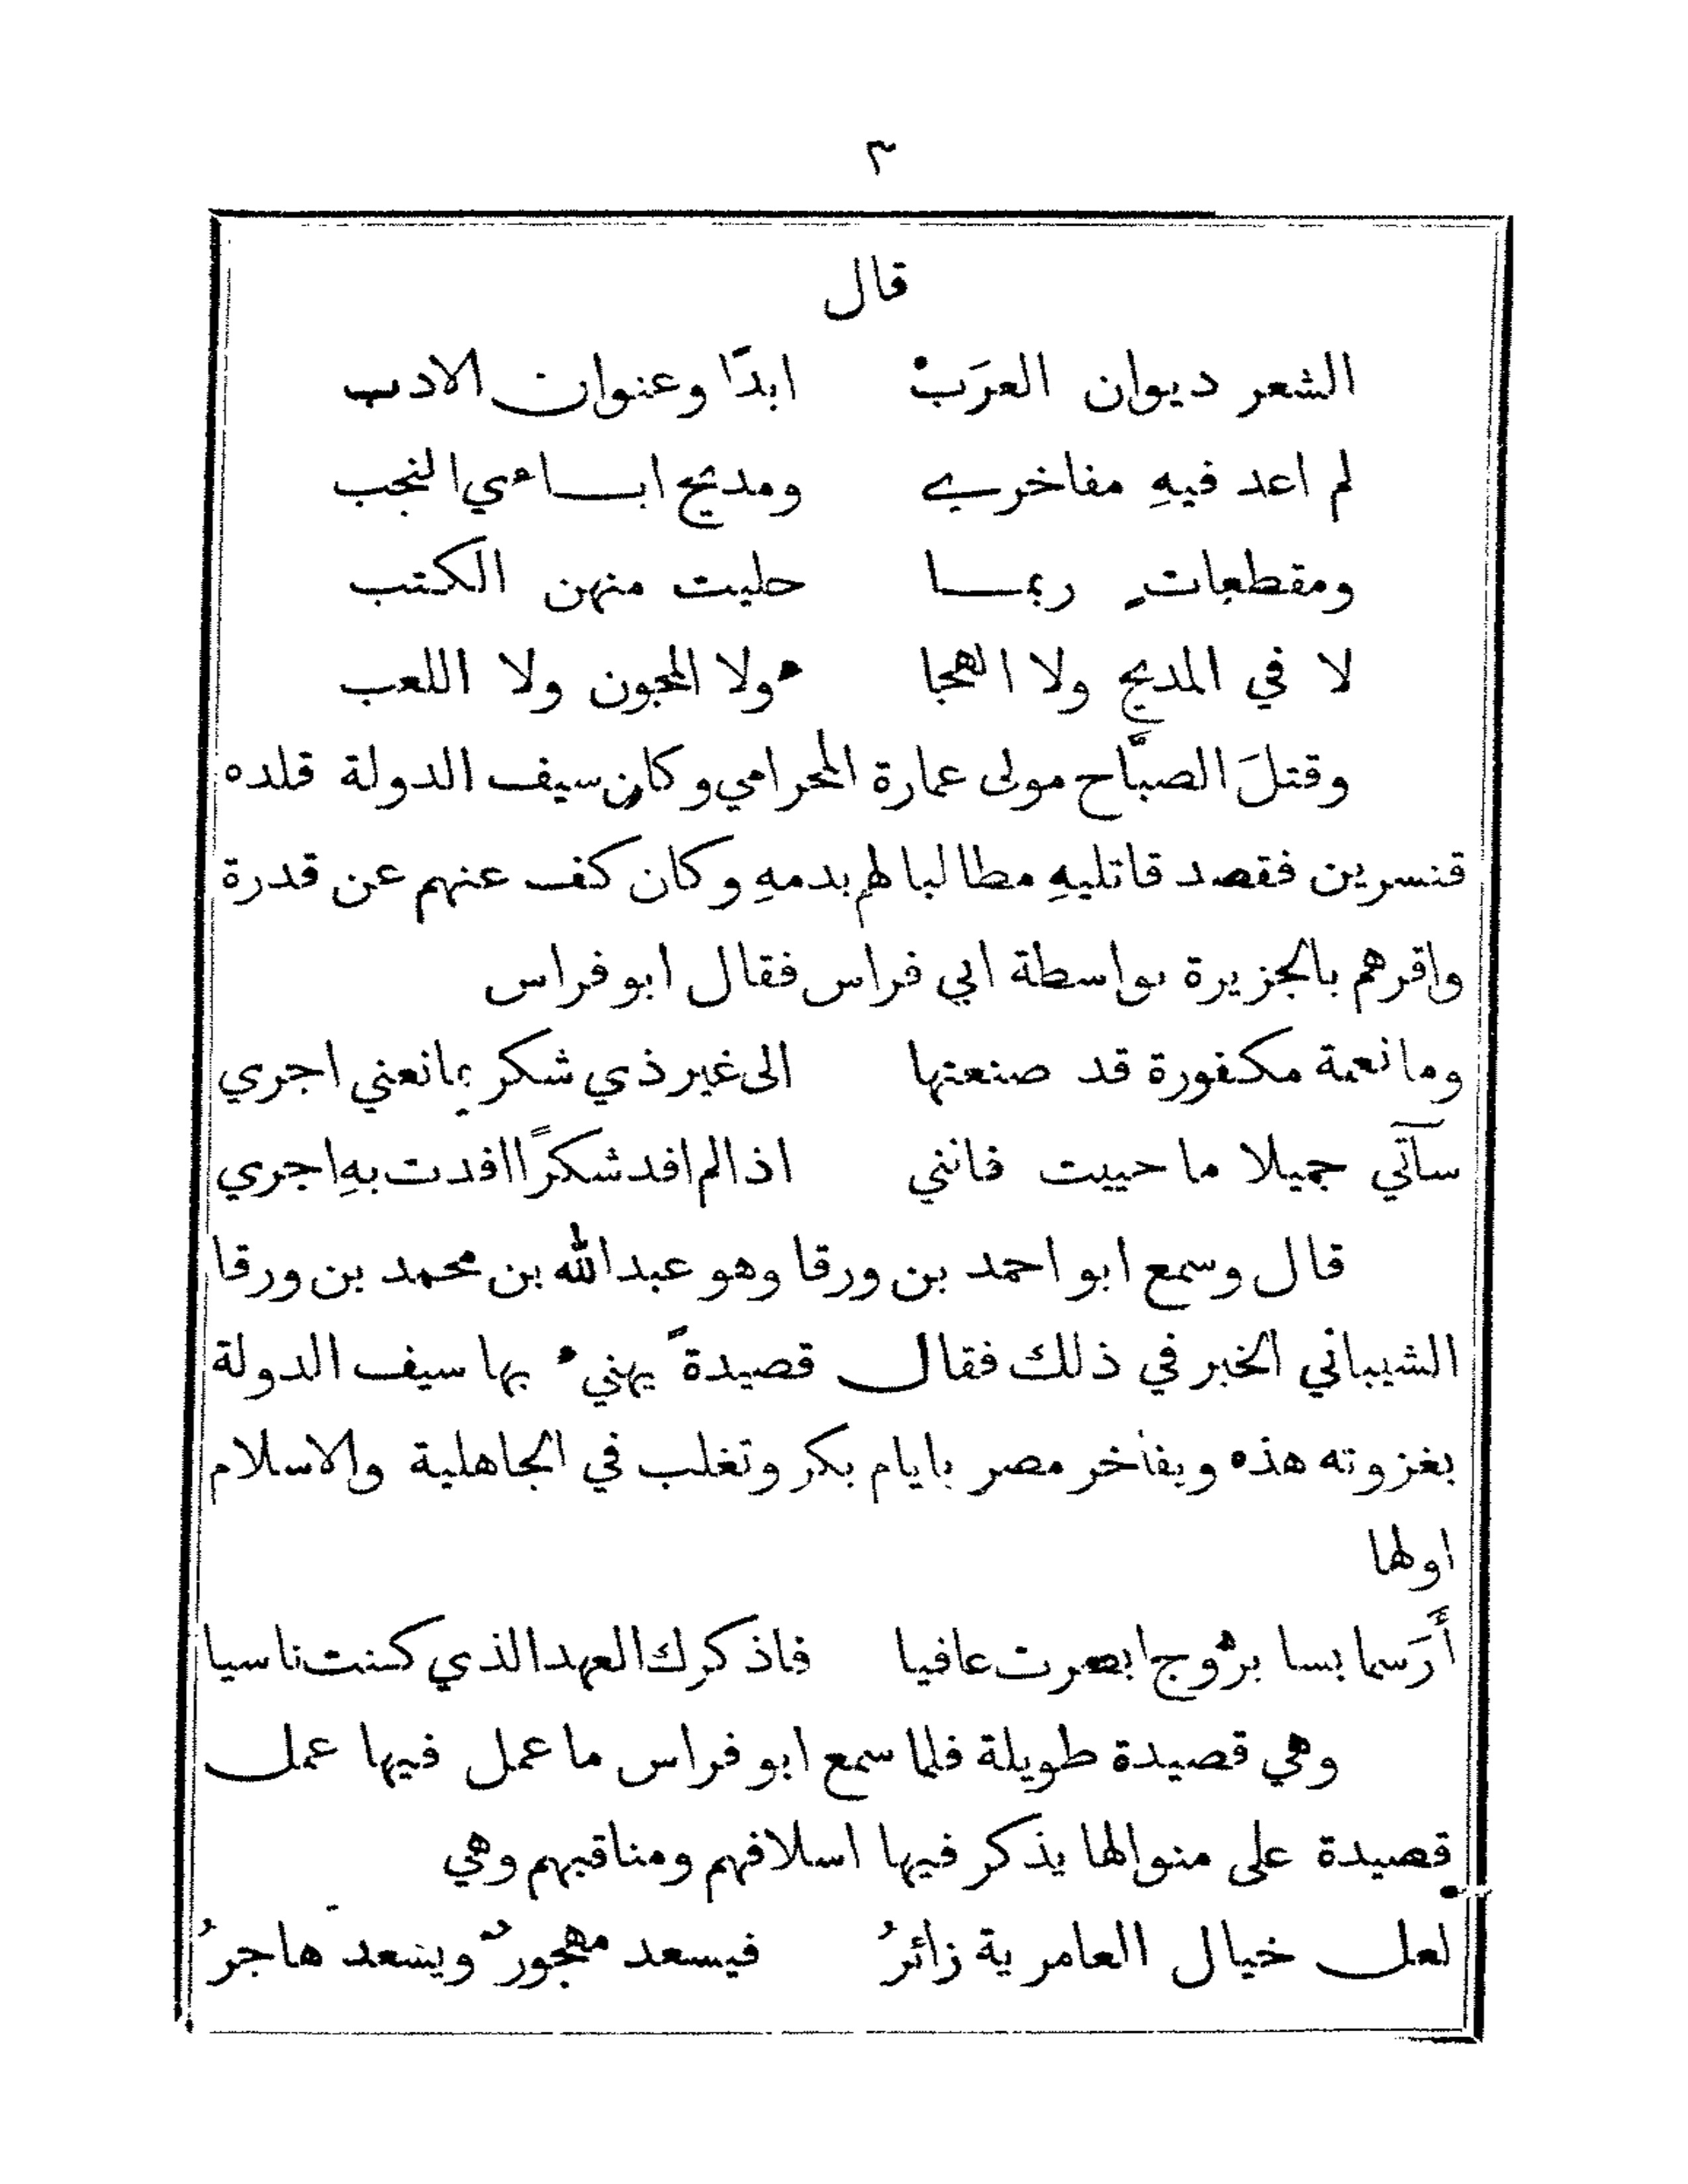 ٣
قال
الشعر ديوان العرَبْ ابدًا وعنوان الادب
لم اعد فيهِ مفاخري ومديح اباءي النجب
ومقطعاتٍ ربما حليت منهن الكتب
لا في المديح ولا الهجا ءولا المجون ولا اللعب
وقتلَ الصبَّاح مولى عمارة المحرامي وكان سيف الدولة قلده
قنسرين فقصد قاتليهِ مطالبا لهم بدمهِ وكان كف عنهم عن قدرة
واقرهم بالجزيرة بواسطة ابي فراس فقال ابو فراس
وما نعمة مكفورة قد صنعتها الى غير ذي شكر بمانعني اجري
سآتي جميلا ما حييت فانني اذا لم افد شكرًا افدت بهِ اجري
قال وسمع ابو احمد بن ورقا وهو عبد الله بن محمد بن ورقا
الشيباني الخبر في ذلك فقال قصيدةً يهنيء بها سيف الدولة
بغزوته هذه ويفاخر مصر بايام بكر وتغلب في الجاهلية والاسلام
اولها
أَرَسما بسا بروج ابصرت عافيا فاذكرك العهد الذي كنت ناسيا
وهي قصيدة طويلة فلما سمع ابو فراس ما عمل فيها عمل
قصيدة على منوالها يذكر فيها اسلافهم ومناقبهم وهي
لعل خيال العامرية زائرُ فيسعد مهجورٌ ويسعد هاجرُ